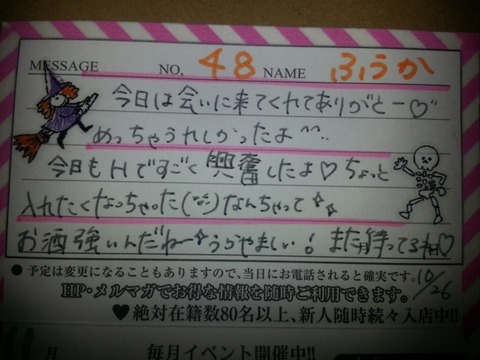 MESSAGE NO, 48 NAME ふうか
今日は会いに来てくれてありがとー♡
めっちゃうれしかったよ^^..
今日もHですごく興奮したよ♡ちょっと
入れたくなっちゃった(˘ω˘)なんちゃって☆
お酒強いんだねー☆うらやましい!また待ってるね♡
10/26
●予定は変更になることもありますので、当日にお電話されると確実です。
HP・メルマガでお得な情報を随時ご利用できます。
♥絶対在籍数80名以上、新人随時続々入店中!!
毎月イベント開催中!!